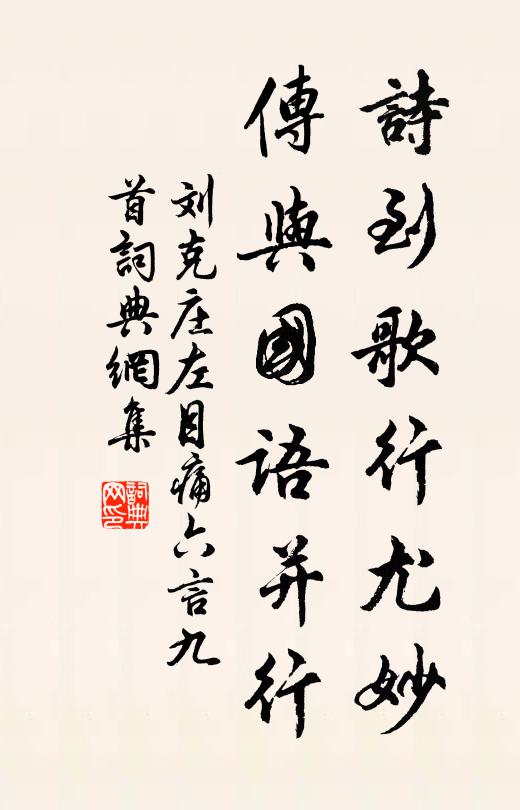 詩到歌行尤妙
傳與國語并行
刘克庄左目痛六言九
首詞典網集
詞典网印